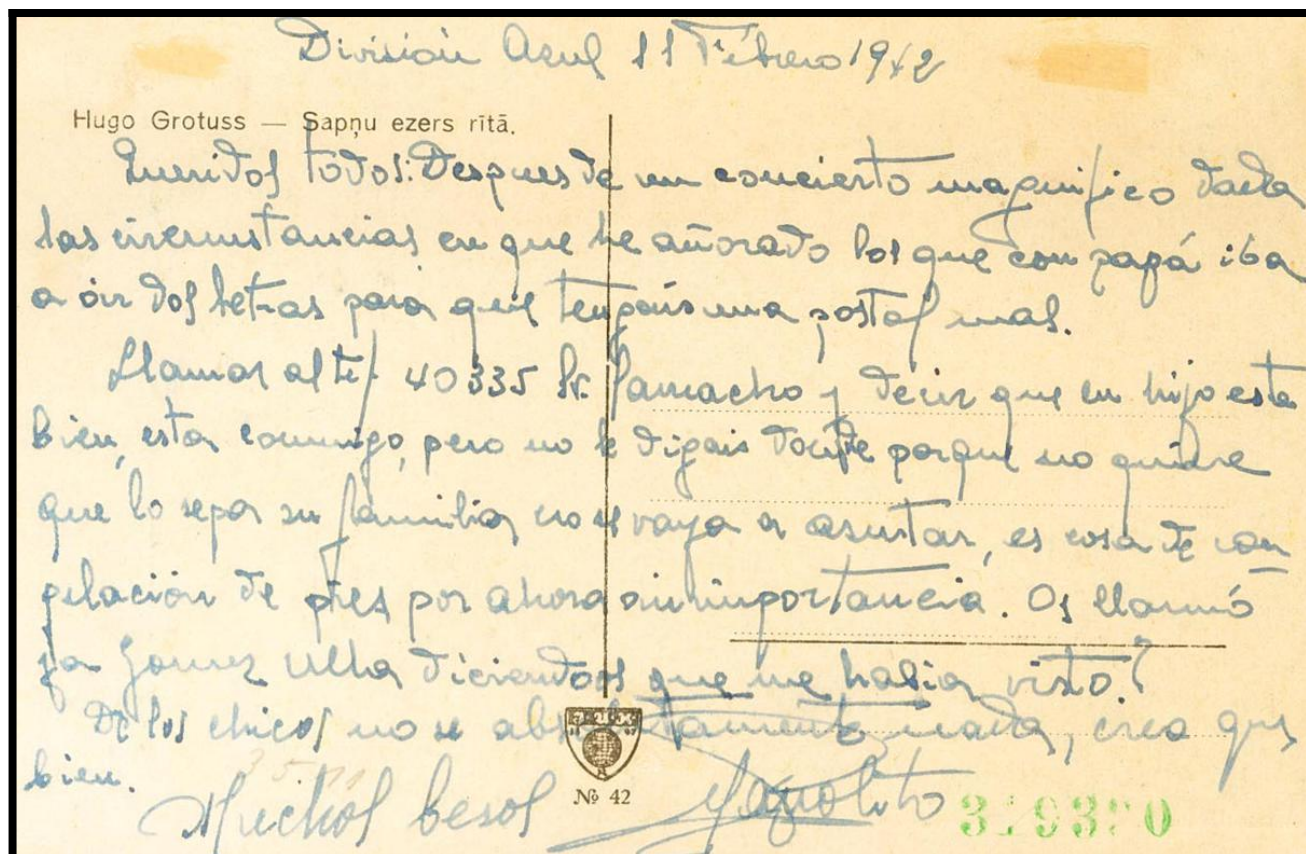 División Azul 11 Febrero 1942
Hugo Grotuss — Sapņu ezers rītā.
Queridos todos: Despues de un concierto magnifico dada
las circunstancias en que he añorado los que con papá iba
a oir dos letras para que tengais una postal mas.
Llamar al tef 40335 Sr. Camacho y decir que su hijo esta
bien, esta conmigo, pero no le digais donde porque no quiere
que lo sepa su familia no se vaya a asustar, es cosa de con
gelación de pies por ahora sin importancia. Os llamó
ya Gomez Ulla diciendoos que me habia visto?
De los chicos no se absolutamente nada, creo que
bien.
Muchos besos Manolito
№ 42